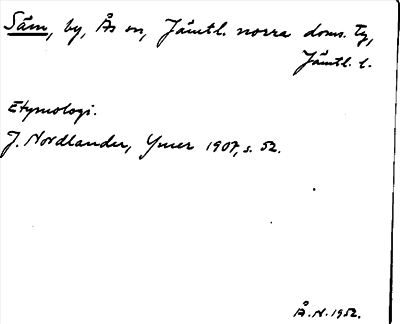 Säm, by, Ås sn, Jämtl. norra doms. tg,
Jämtl. l.
Etymologi.
J. Nordlander, Ymer 1907, s. 52.
Å.N. 1952.